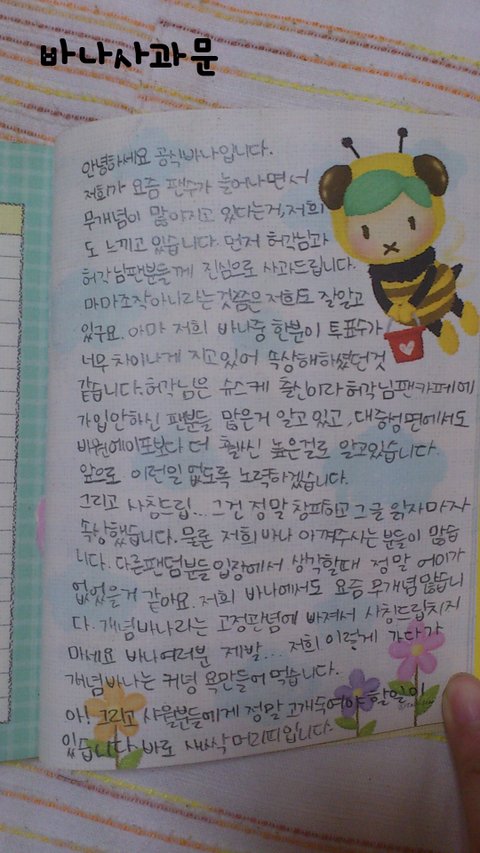 바나사과문
안녕하세요 공식바나입니다.
저희가 요즘 팬수가 늘어나면서
무개념이 많아지고 있다는거, 저희
도 느끼고 있습니다. 먼저 허각님과
허각님팬분들께 진심으로 사과드립니다.
마마조작아니라는것쯤은 저희도 잘알고
있구요. 아마 저희 바나중 한분이 투표수가
너무 차이나게 지고있어 속상해하셨던것
같습니다. 허각님은 슈스케 출신이라 허각님팬카페에
가입안하신 팬분들 많은거 알고있고, 대중성면에서도
비원에이포보다 더 훨씬 높은걸로 알고있습니다.
앞으로 이런일 없도록 노력하겠습니다.
그리고 사칭드립... 그건 정말 창피하고 그글 읽자마자
속상했습니다. 물론 저희바나 아껴주시는 분들이 많습
니다. 다른팬덤분들 입장에서 생각할때 정말 어이가
없었을거 같아요. 저희 바나에서도 요즘 무개념 많습니
다. 개념바나라는 고정관념에 빠져서 사칭드립치지
마세요 바나여러분 제발... 저희 이렇게 가다가
개념바나는 커녕 욕만들어 먹습니다.
아! 그리고 샤월분들에게 정말 고개숙여야 할일이
있습니다. 바로 새싹 머리띠입니다.